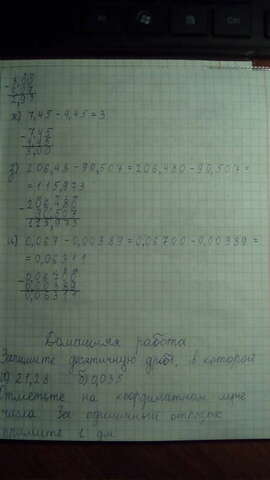 ж) 7,45 - 4,45 = 3
- 7,45
4,45
3,00
з) 206,48 - 90,507 = 206,480 - 90,507 =
= 115,973
- 206,480
90,507
115,973
и) 0,067 - 0,00389 = 0,06700 - 0,00389 =
= 0,06311
- 0,06700
0,00389
0,06311
Домашняя работа
Запишите десятичную дробь, в которой
а) 21,28 б) 0,035
Отметьте на координатном луче
числа За единичный отрезок
примите 1 дм